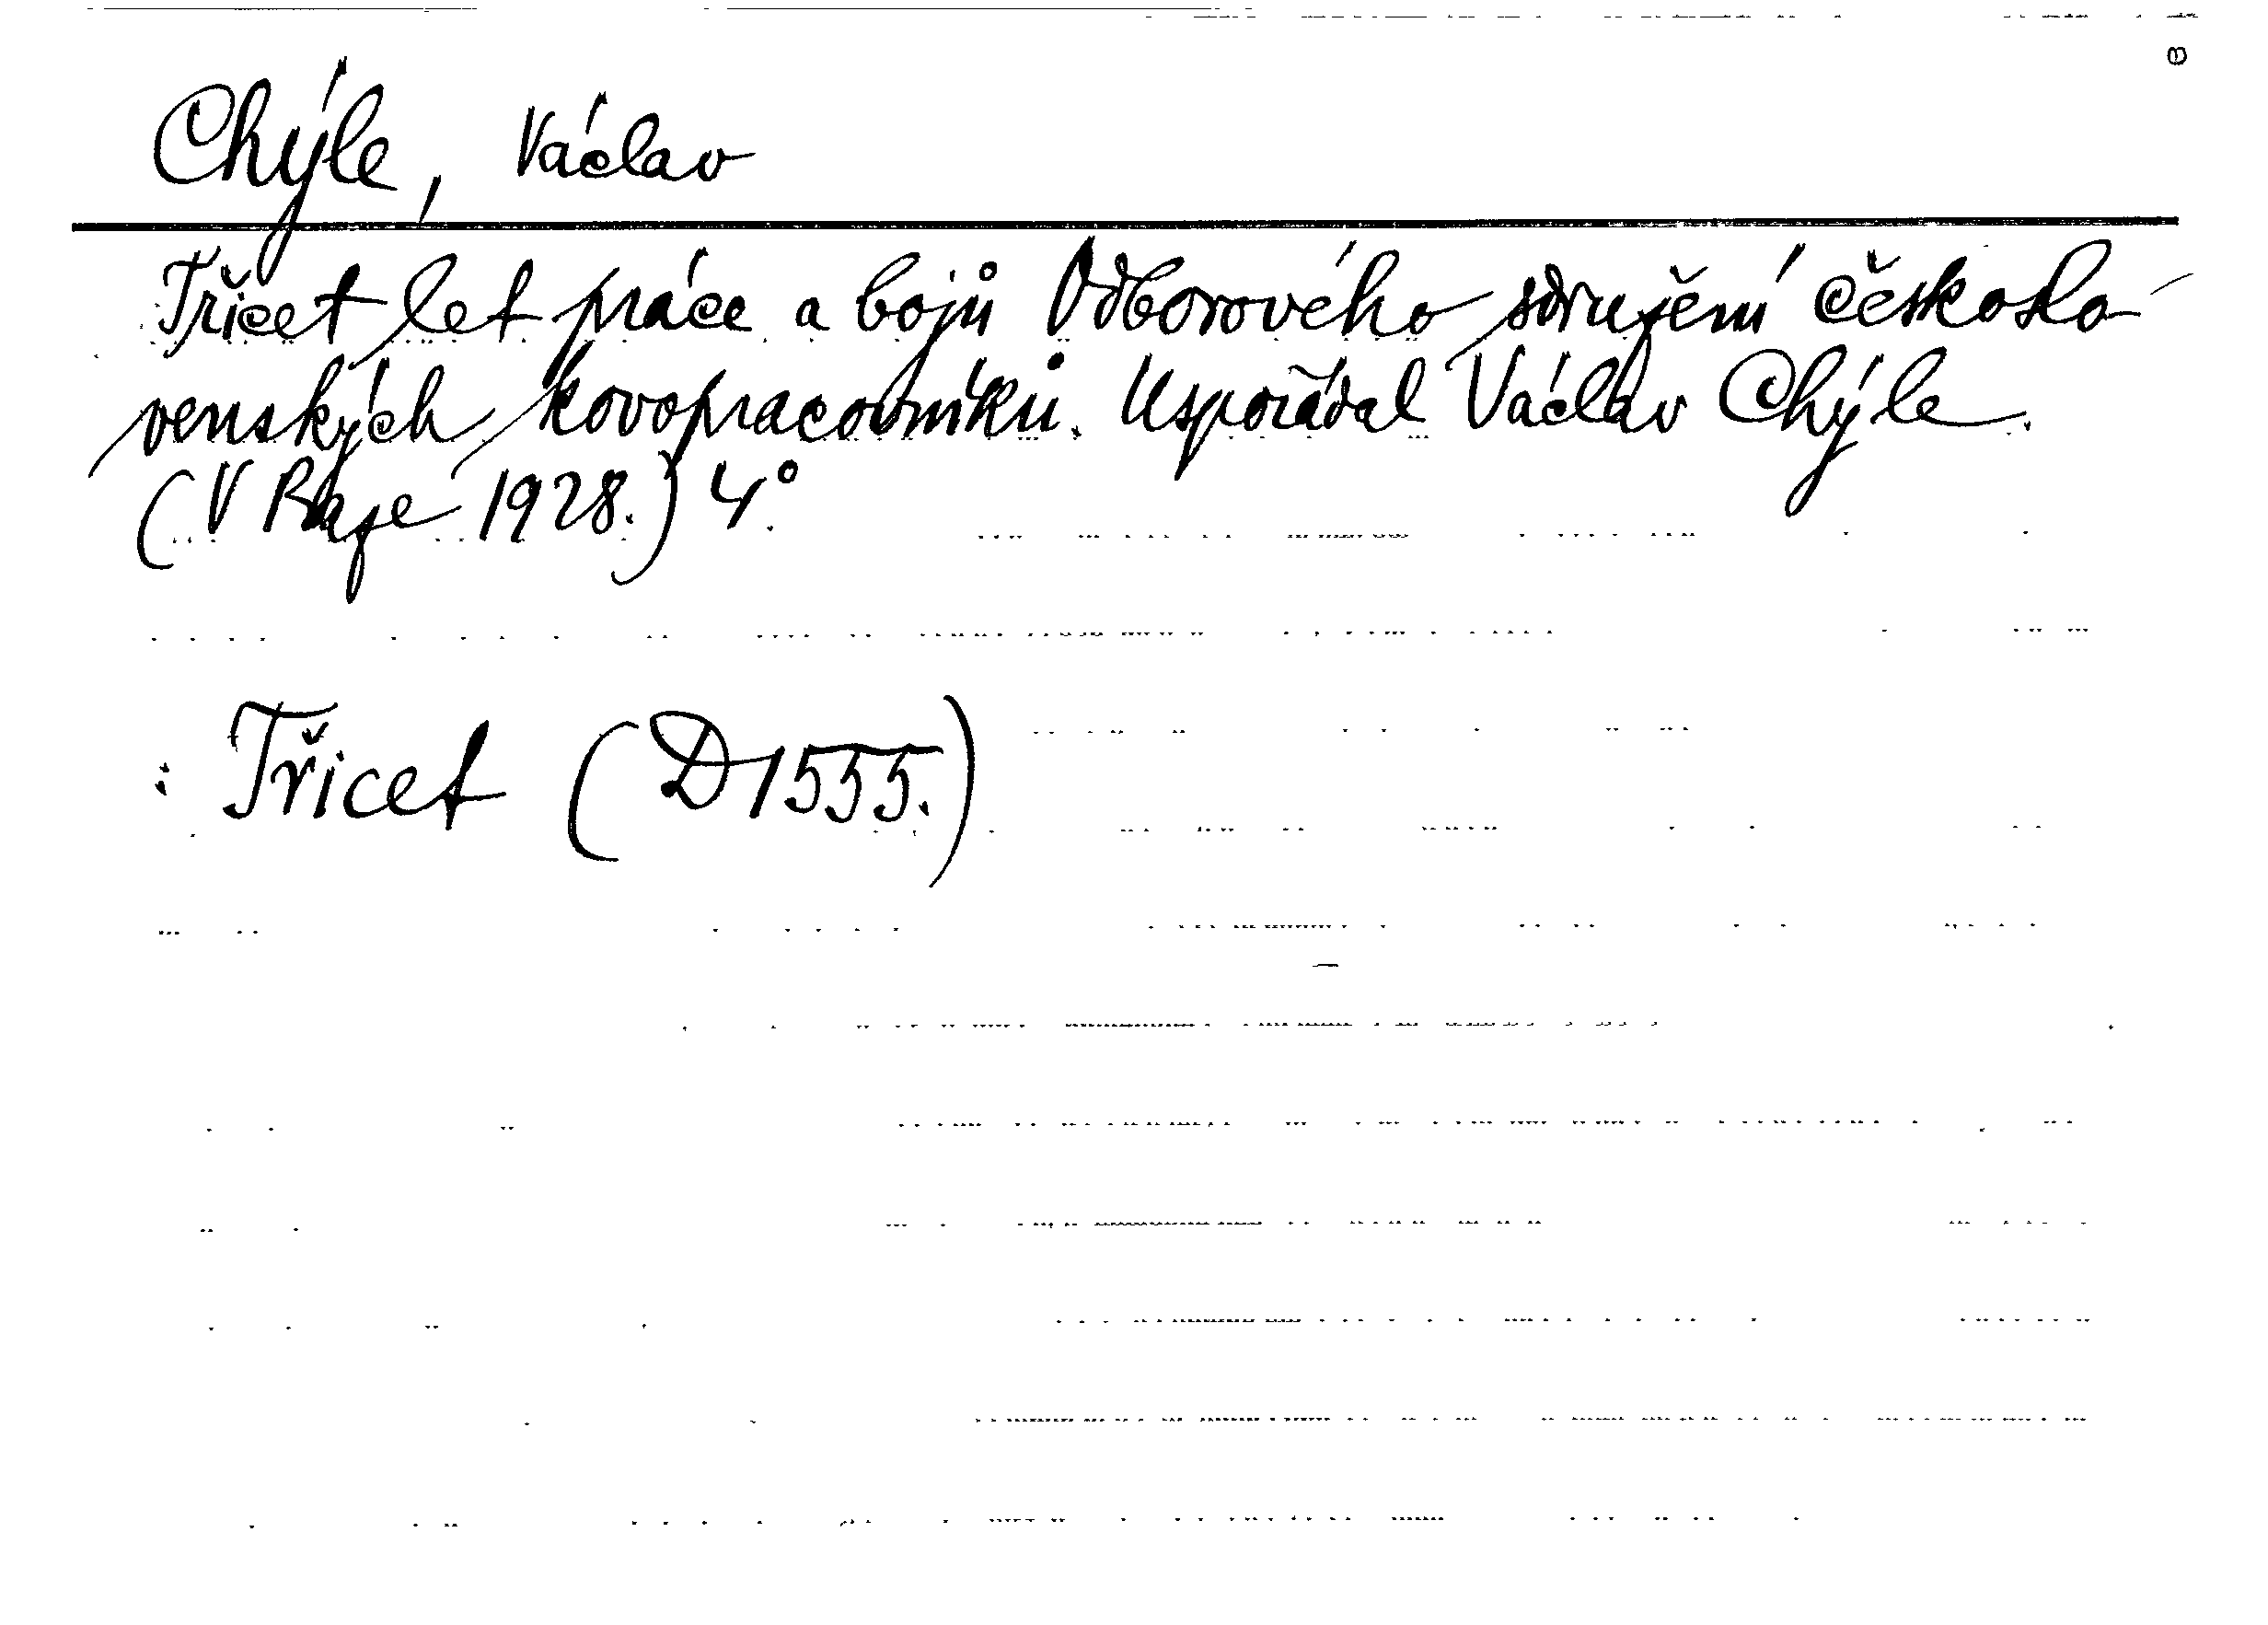 Chýle, Václav
Třicet let práce a bojů Odborového sdružení českoslo-
venských kovopracovníků. Uspořádal Václav Chýle.
(V Praze 1928.) 4°.
: Třicet (D1555.)